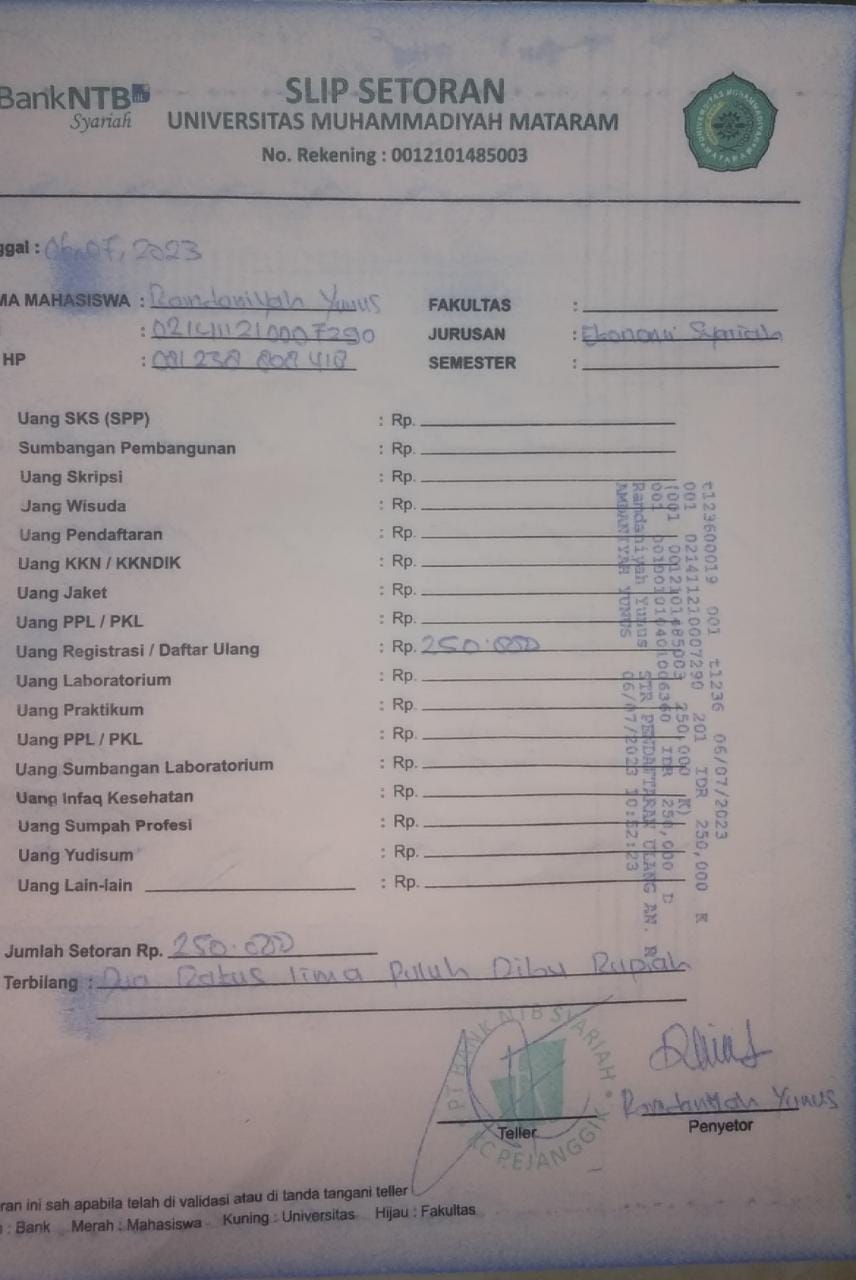 BankNTB
Syariah
SLIP SETORAN
UNIVERSITAS MUHAMMADIYAH MATARAM
No. Rekening : 0012101485003
UNIVERSITAS MUHAMMADIYAH MATARAM
ggal : 06, 07, 2023
MA MAHASISWA : Ramdaniyah Yunus
: 021411121000 7290
HP : 081 238 808 418
FAKULTAS :
JURUSAN : Ekonomi Syariah
SEMESTER :
Uang SKS (SPP) : Rp.
Sumbangan Pembangunan : Rp.
Uang Skripsi : Rp.
Uang Wisuda : Rp.
Uang Pendaftaran : Rp.
Uang KKN / KKNDIK : Rp.
Uang Jaket : Rp.
Uang PPL / PKL : Rp.
Uang Registrasi / Daftar Ulang : Rp. 250.000
Uang Laboratorium : Rp.
Uang Praktikum : Rp.
Uang PPL / PKL : Rp.
Uang Sumbangan Laboratorium : Rp.
Uang Infaq Kesehatan : Rp.
Uang Sumpah Profesi : Rp.
Uang Yudisum : Rp.
Uang Lain-lain : Rp.
t123600019 001 t1236 06/07/2023
001 021411210007290 201 IDR 250,000 K
(001 0012101485003 250,000 K)
001 IDR 250,000 D
Ramdaniyah Yunus STR PENDAFTARAN ULANG AN. R
AMDANIYAH YUNUS 06/07/2023 10:52:23
Jumlah Setoran Rp. 250.000
Terbilang : Dua Ratus lima Puluh Ribu Rupiah
PT BANK NTB SYARIAH
KC PEJANGGIK
Ramdaniyah Yunus
Teller
Penyetor
ran ini sah apabila telah di validasi atau di tanda tangani teller
: Bank Merah : Mahasiswa Kuning : Universitas Hijau : Fakultas